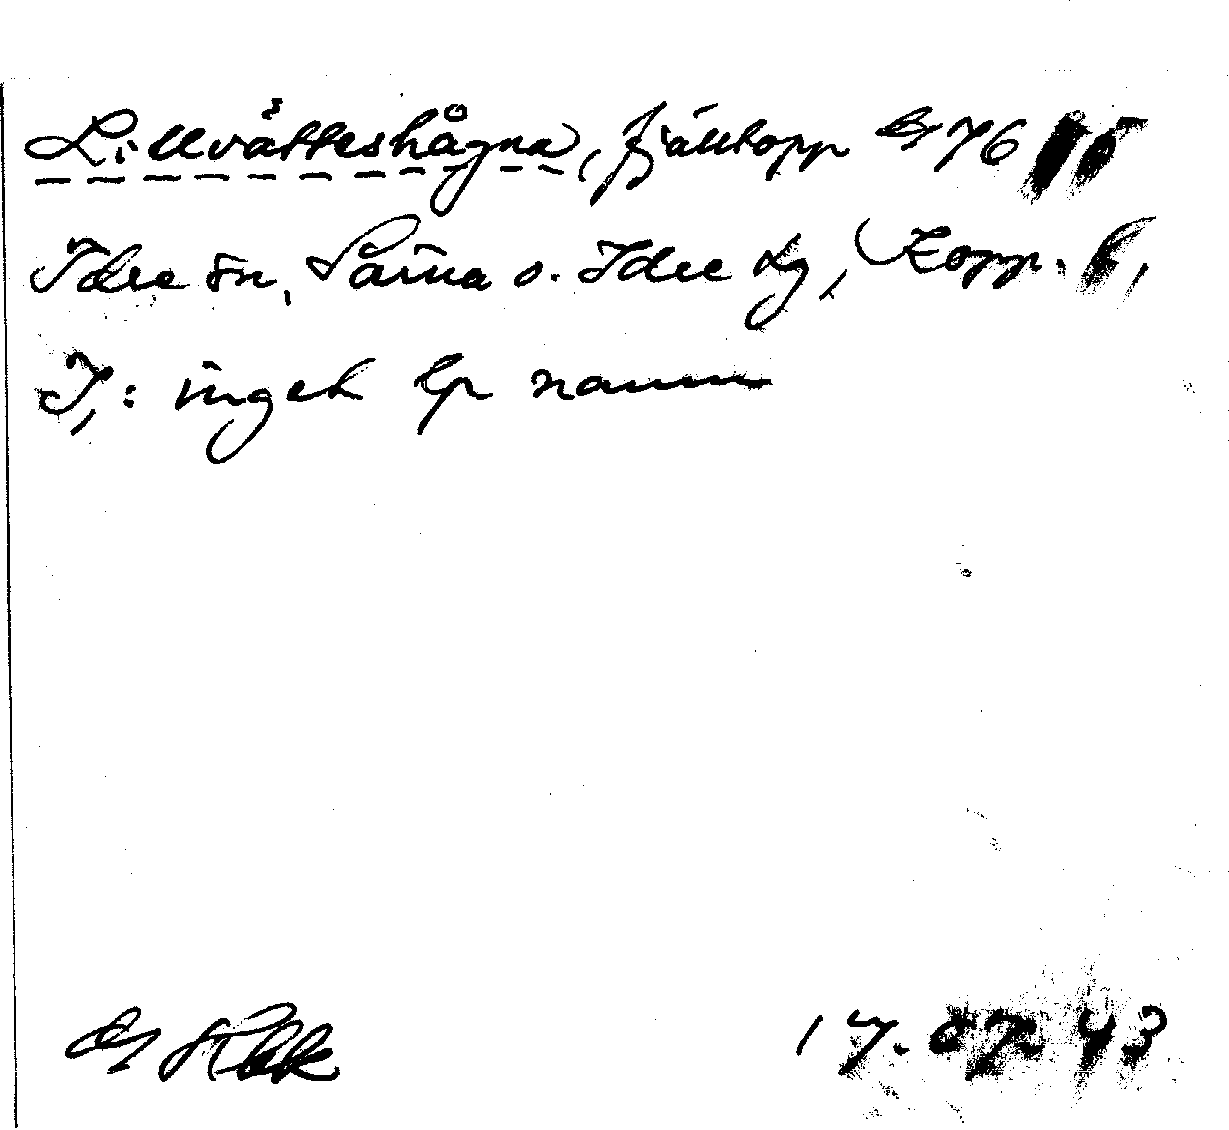 Lillvätteshågna, fjälltopp 76
Idre sn, Särna o. Idre tg, Kopp. l,
I,: inget lp namn
17.07.43